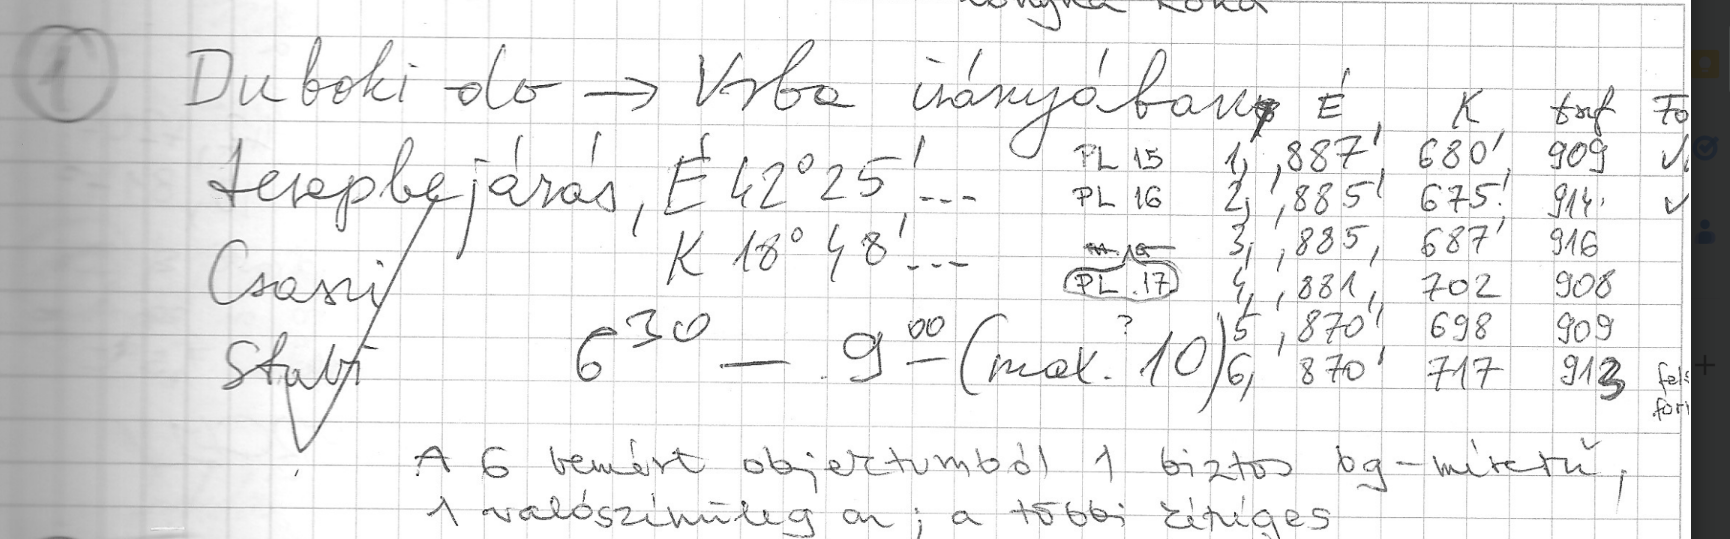 konyha
① Duboki do → Vrba irányában
terepbejárás, É 42° 25'...
K 18° 48'...
Csaszi
Stabi
6³⁰ — 9⁰⁰ (max. 10)
É K tszf Fo
PL 15 1, ,887' 680' 909 ✓
PL 16 2, ',885' 675' 914. ✓
3, ',885, 687' 916
PL 17 4, ',881, 702 908
? 5 ',870' 698 909
6, ' 870' 717 913
A 6 bemért objektumból 1 biztos bg-méretű,
1 valószínűleg az; a többi